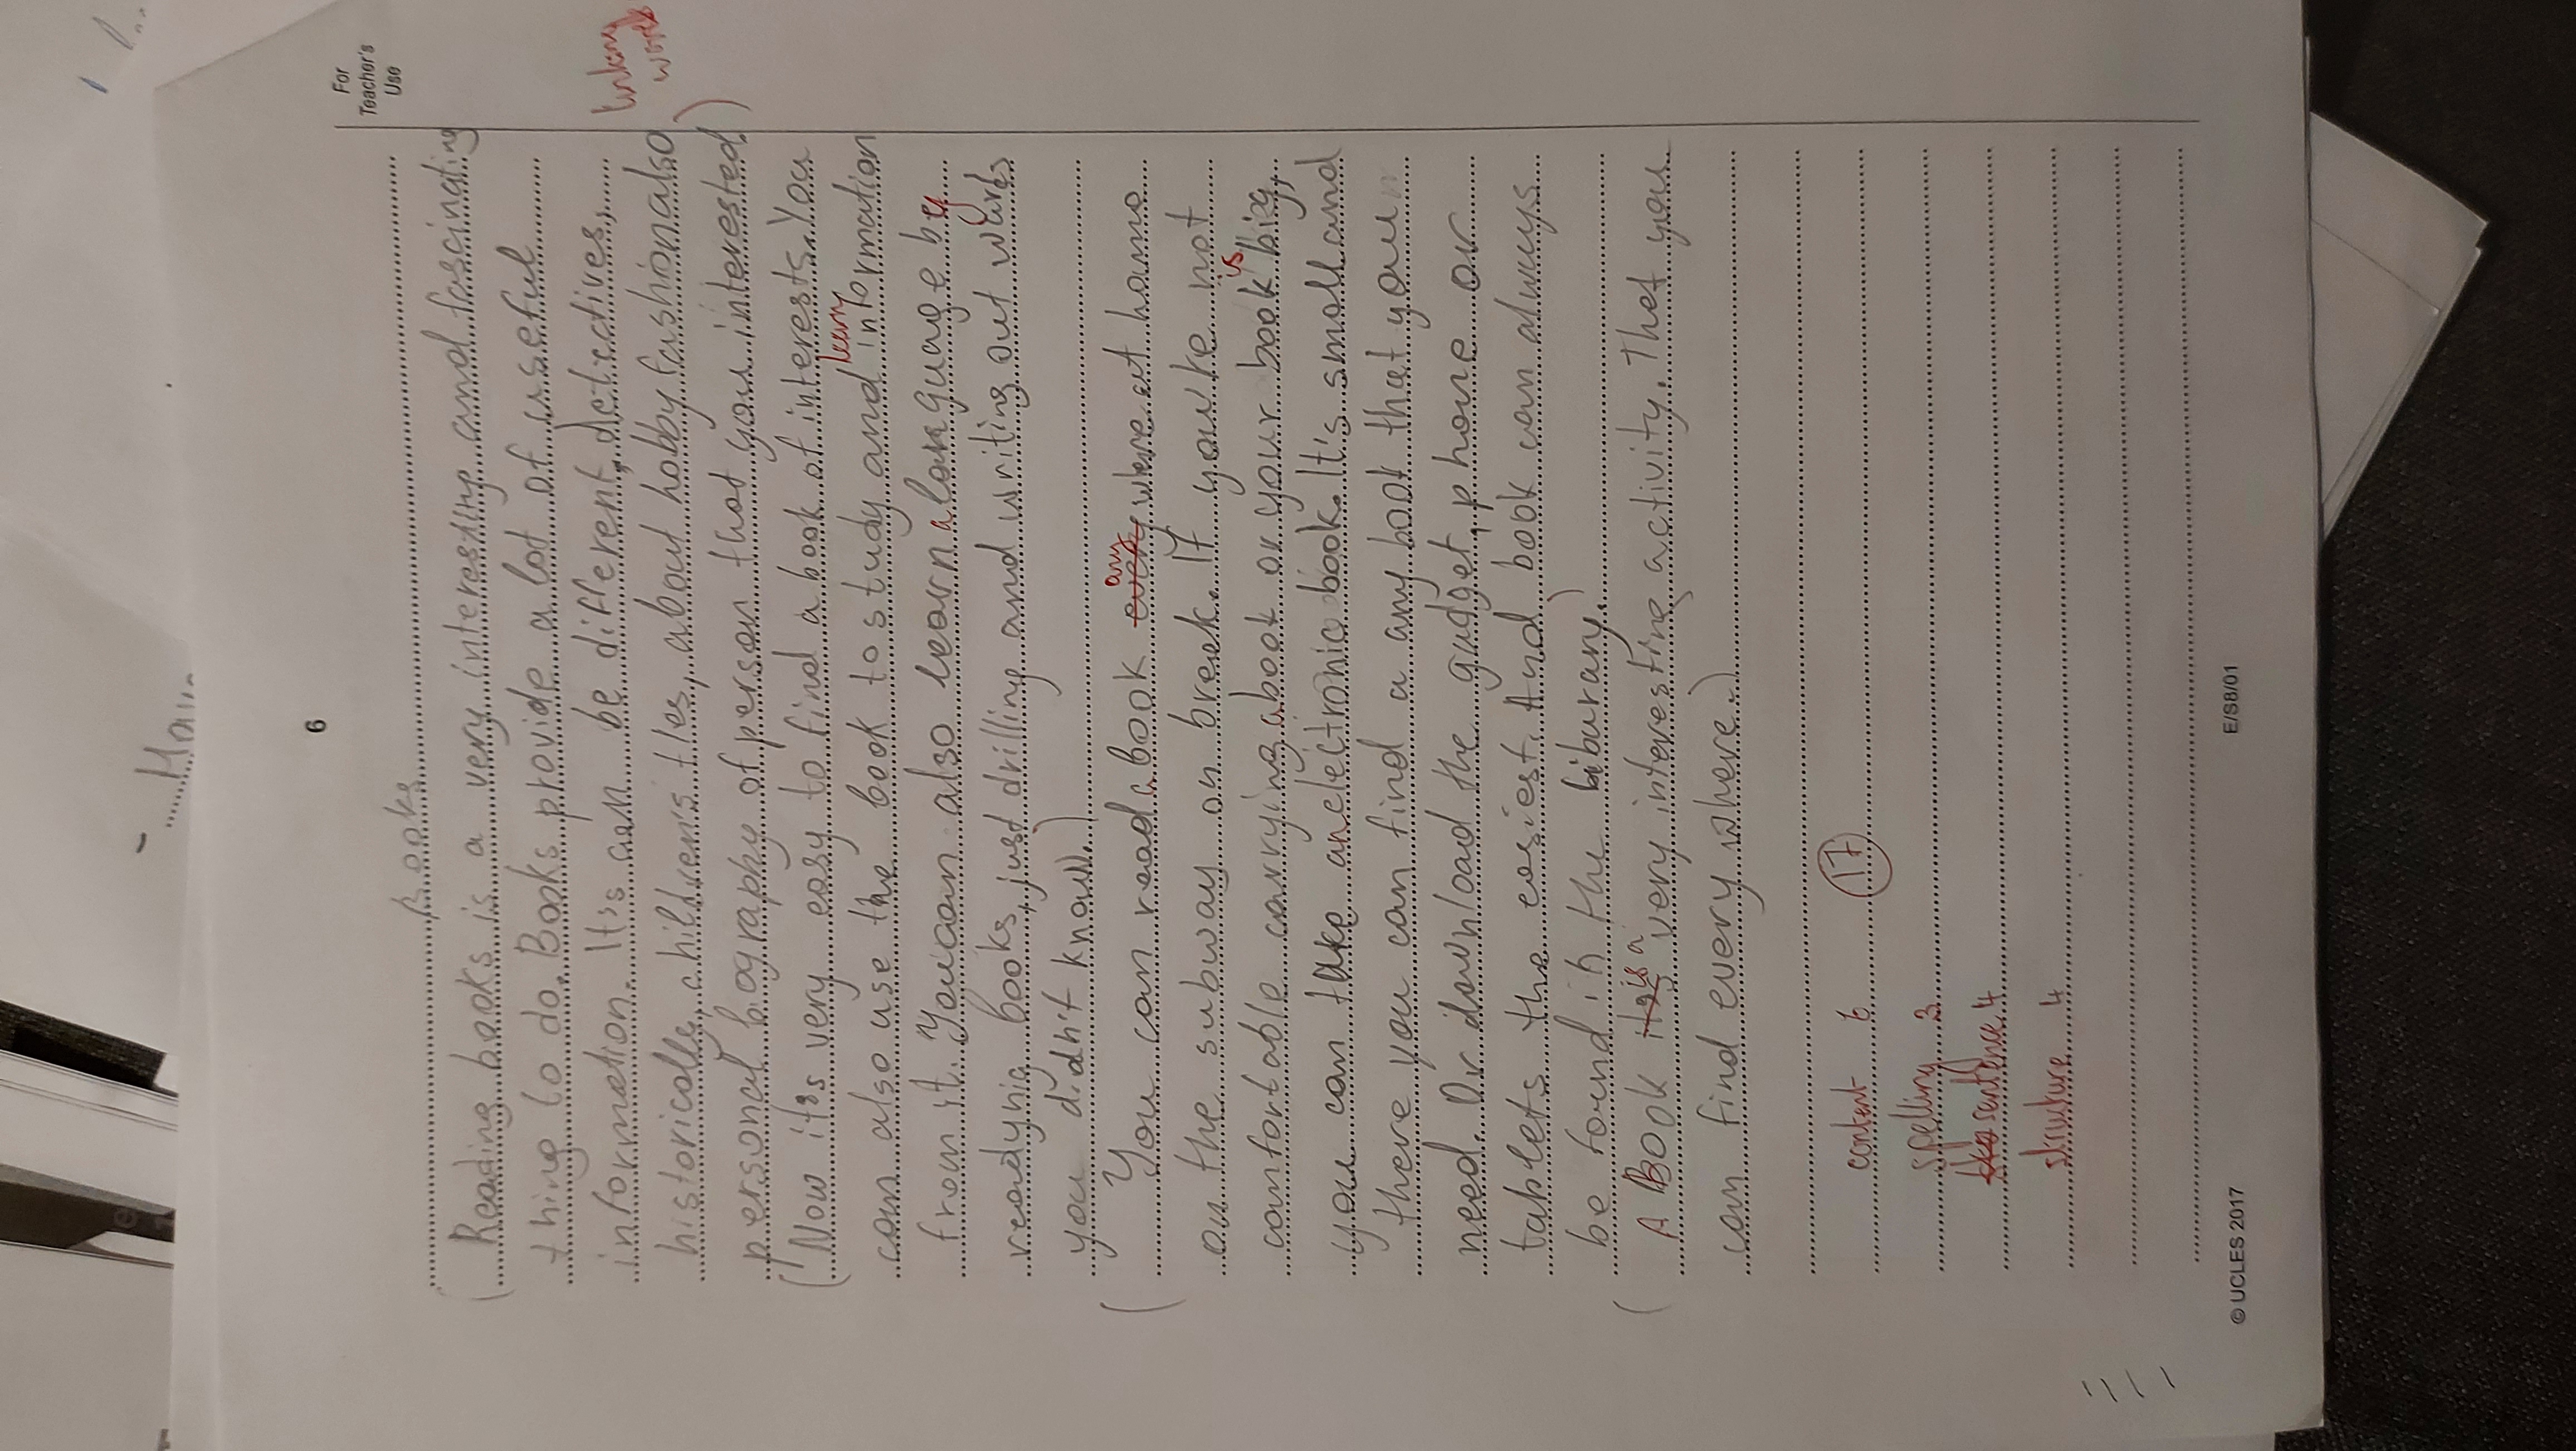 6
For
Teacher's
Use
Books
Reading books is a very interesting and fascinating
thing to do. Books provide a lot of useful
information. It's can be different, detectives,
linking
words
historically, children's tles, about hobby fashion also
personal biography of person that you interested.
Now it's very easy to find a book of interests. You
learn
can also use the book to study and information
from it. You can also learn a language by
readynig books, just drilling and writing out words
you didn't know.
any
You can read a book every where at home
on the subway on break. If you're not
is
comfortable carrying a book or your book big,
you can take an electronic book. It's small and
there you can find a any book that you
need. Or download the gadget, phone or
tablets the easiest. And book can always
be found in the liburary.
is a
A Book it's very interesting activity. That you
can find every where.
content 6 17
spelling 3
sentence 4
structure 4
© UCLES 2017
E/S8/01